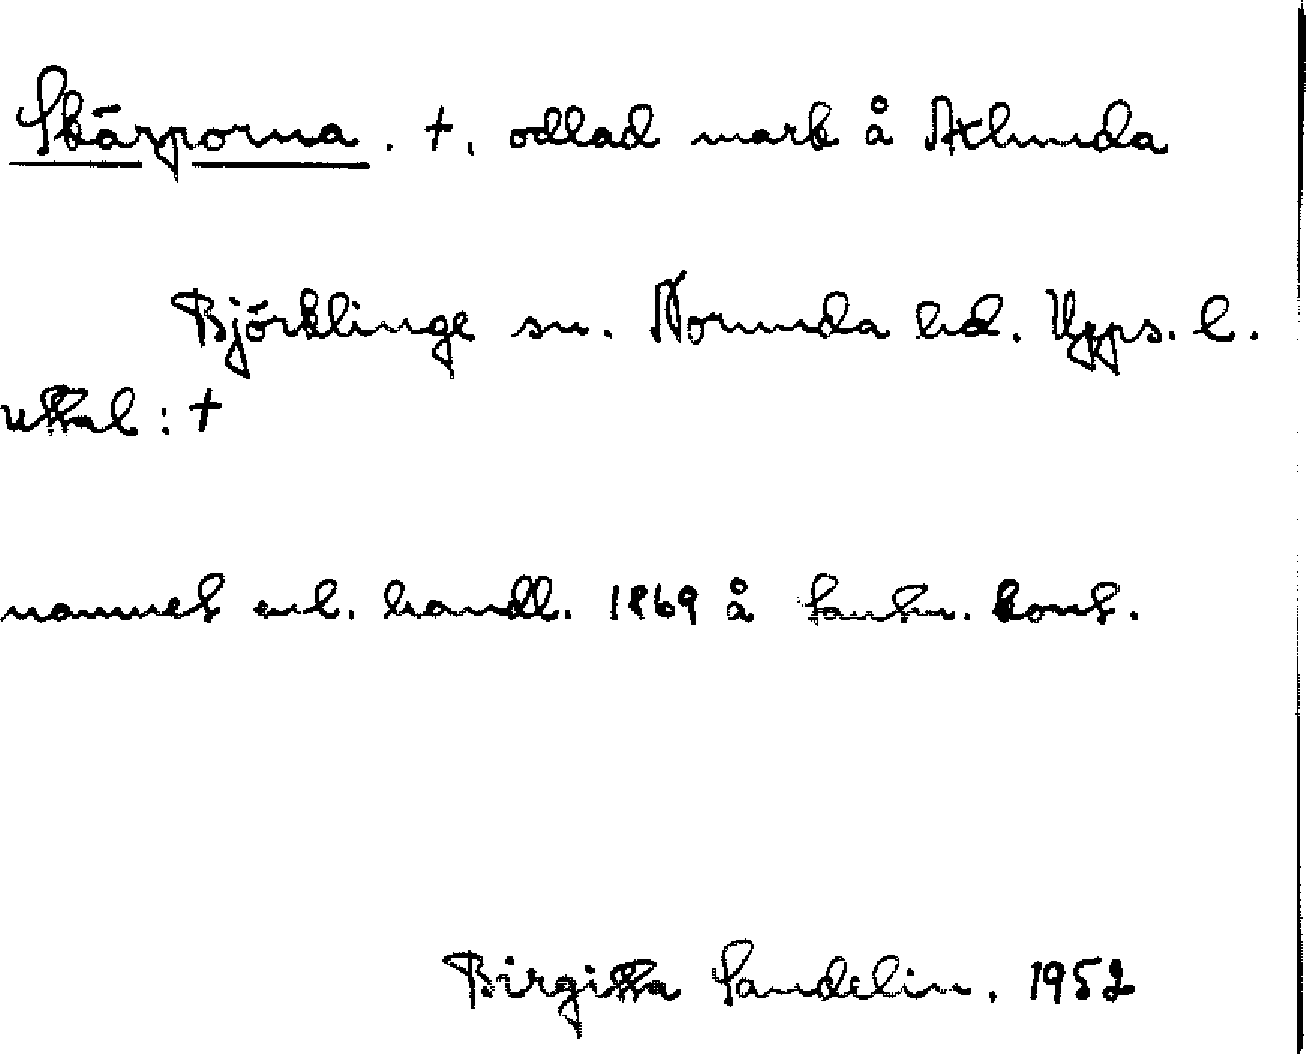 Skärporna. +, odlad mark å Axlunda
Björklinge sn. Norunda hd. Upps. l.
uttal: +
namnet enl. handl. 1869 å Lantm. kont.
Birgitta Sandelin. 1952